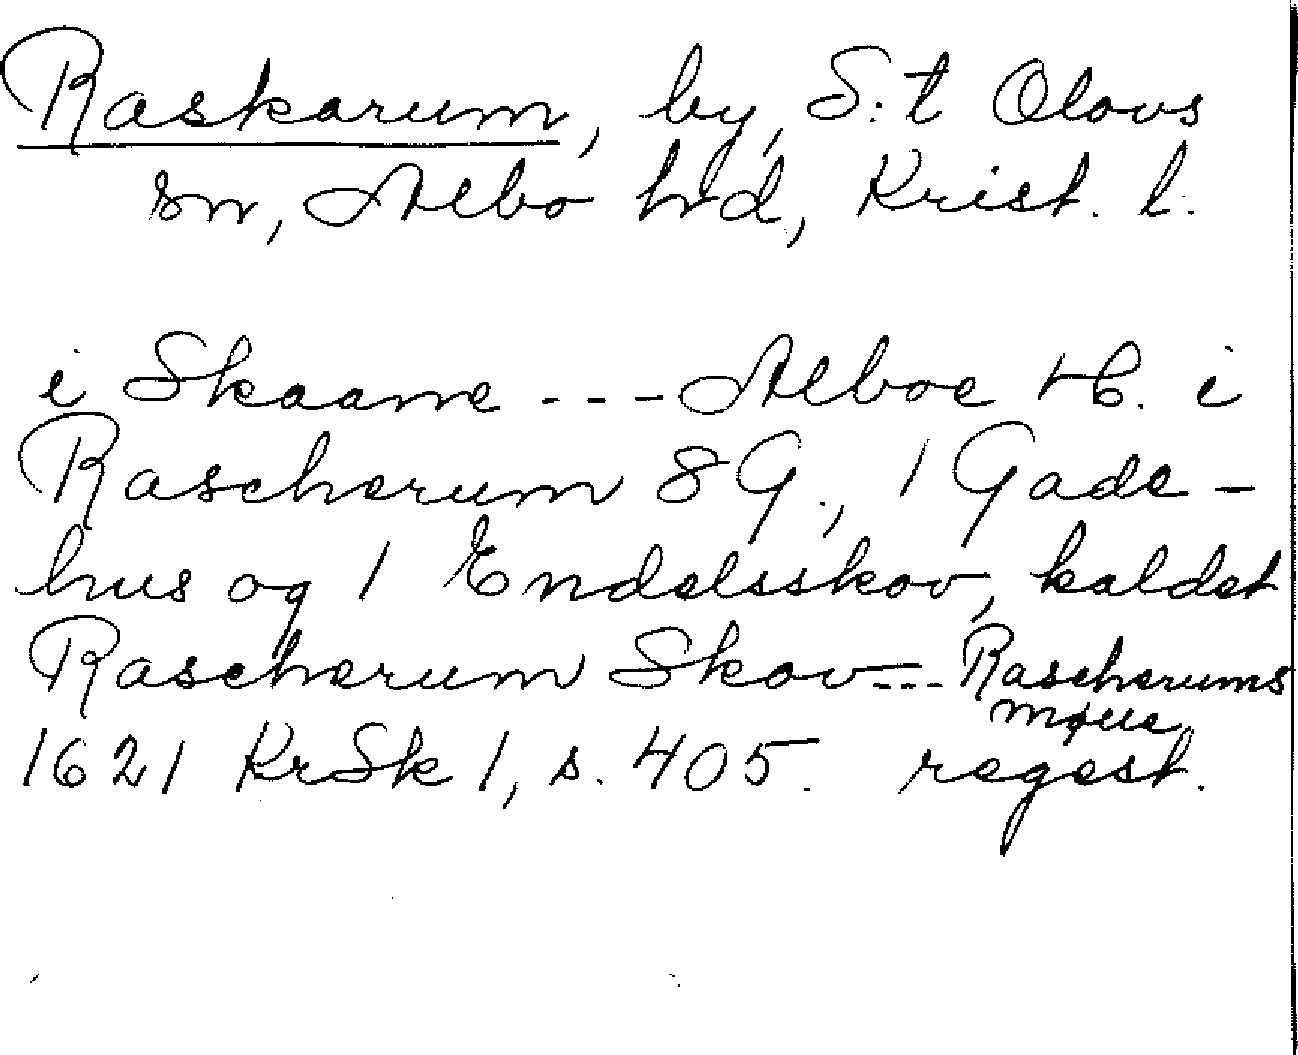 Raskarum, by, S:t Olovs
sn, Albo hd, Krist. l.
i Skaane --- Alboe H. i
Rascherum 8 G., 1 Gade-
hus og 1 Endelsskov, kaldet
Rascherum Skov --- Rascherums
møue
1621 KrSk 1, s. 405. regest.